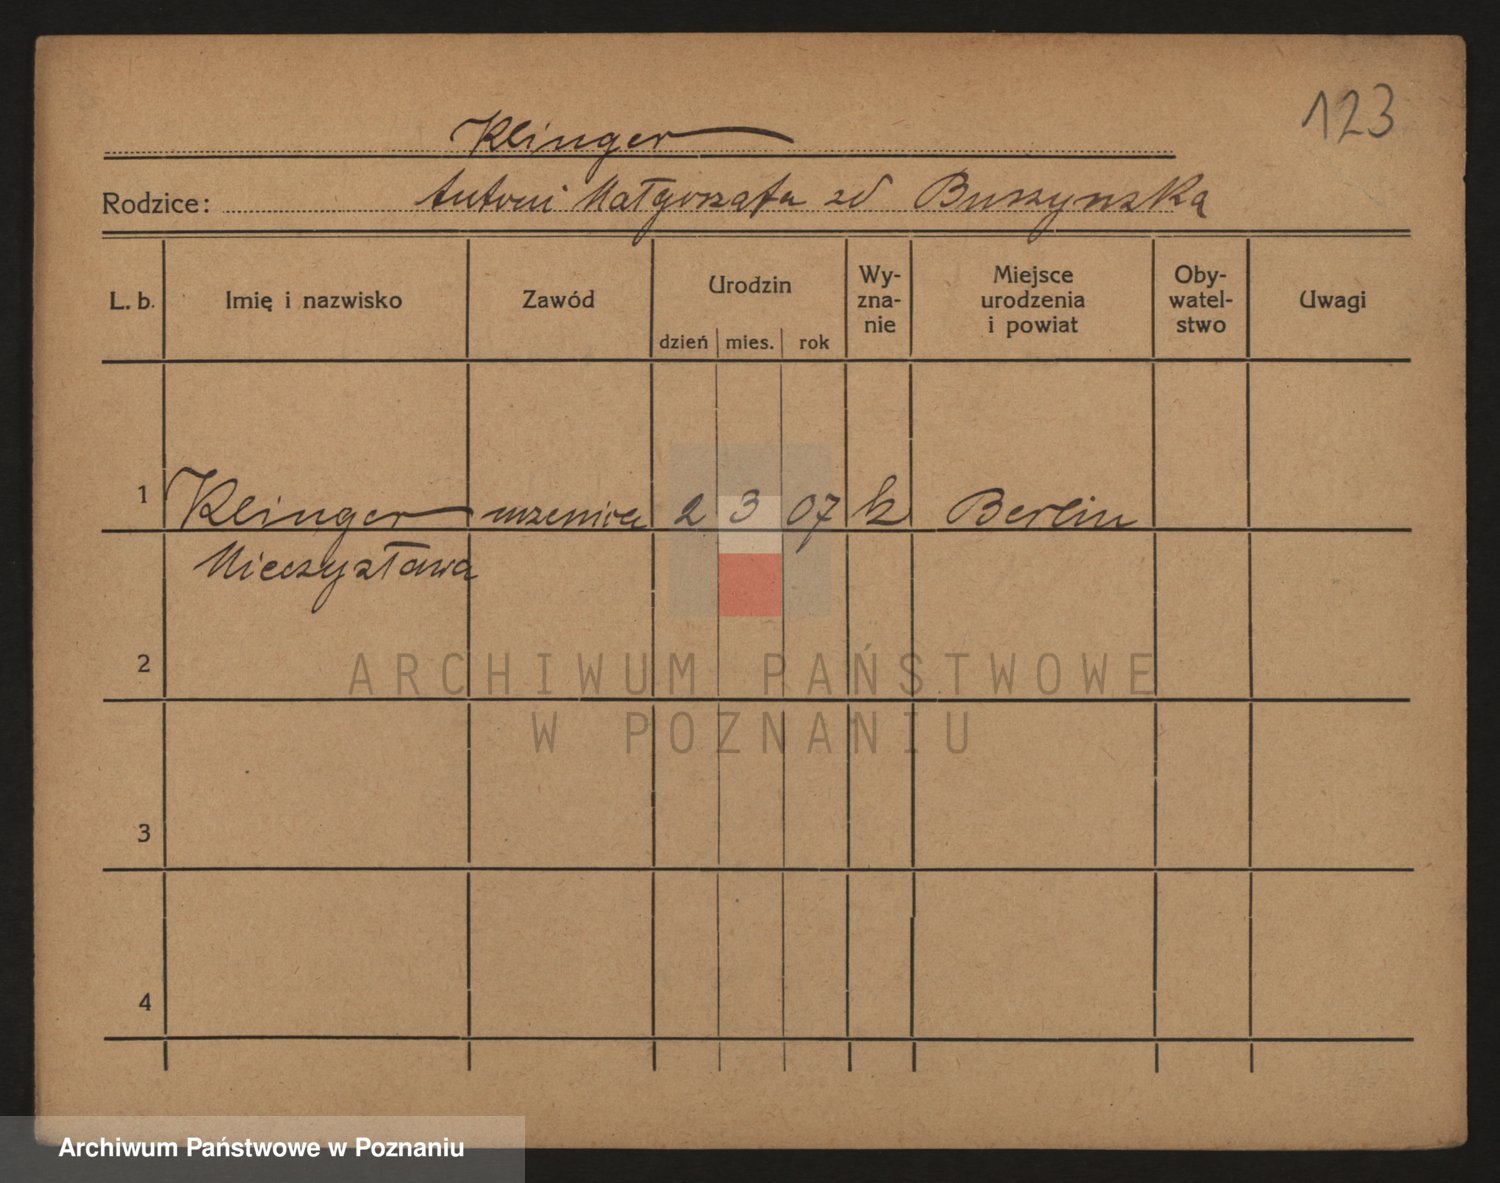 123
Klinger
Rodzice: Antoni Małgorzata zd Buszynska
L. b. Imię i nazwisko Zawód Urodzin dzień mies. rok Wy-zna-nie Miejsce urodzenia i powiat Oby-watel-stwo Uwagi
1 Klinger uczenica 2 3 07 k Berlin
Mieczysława
2
ARCHIWUM PAŃSTWOWE
W POZNANIU
3
4
Archiwum Państwowe w Poznaniu